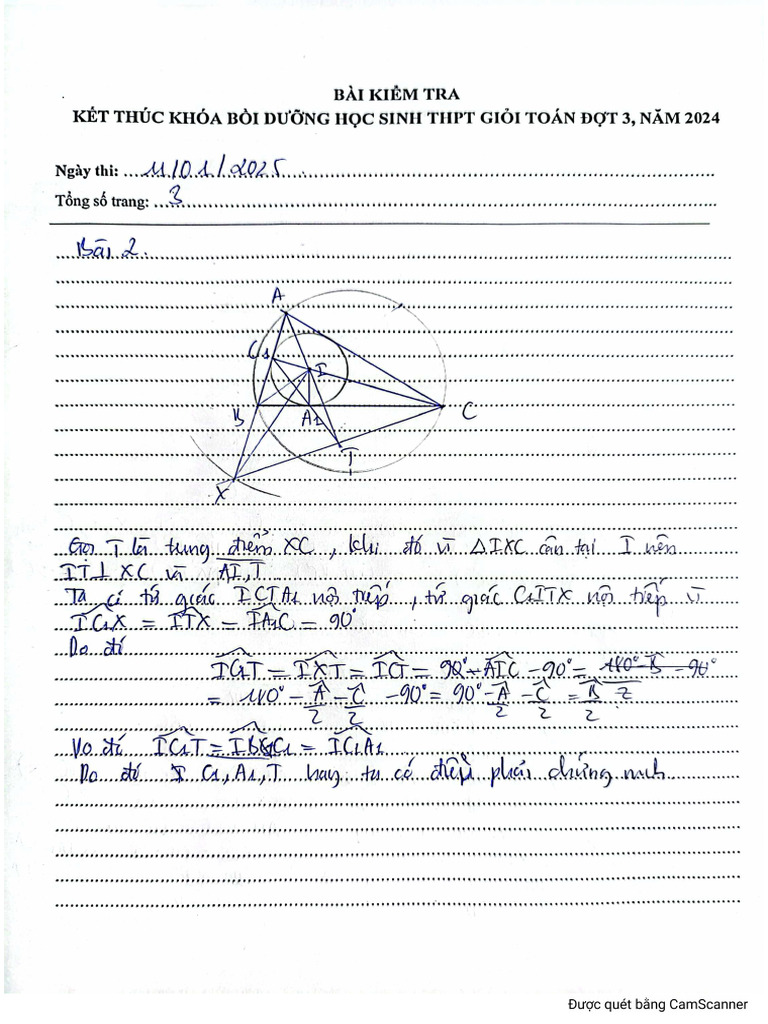 BÀI KIỂM TRA
KẾT THÚC KHÓA BỒI DƯỠNG HỌC SINH THPT GIỎI TOÁN ĐỢT 3, NĂM 2024
Ngày thi: 11/01/2025
Tổng số trang: 3
Bài 2.
A
C1
I
B
A1
C
T
X
Gọi T là trung điểm XC, khi đó vì ΔIXC cân tại I nên
IT⊥XC và AI,T
Ta có tứ giác ICTA1 nội tiếp, tứ giác C1ITX nội tiếp vì
IC1X = ITX = IA1C = 90°
Do đó
IC1T = IXT = ICT = 90° - AIC - 90° = 180° - B - 90°
= 180° - A/2 - C/2 - 90° = 90° - A/2 - C/2 = B/2
Do đó IC1T = IBC1 = IC1A1
Do đó C1, A1, T hay ta có điều phải chứng minh
Được quét bằng CamScanner